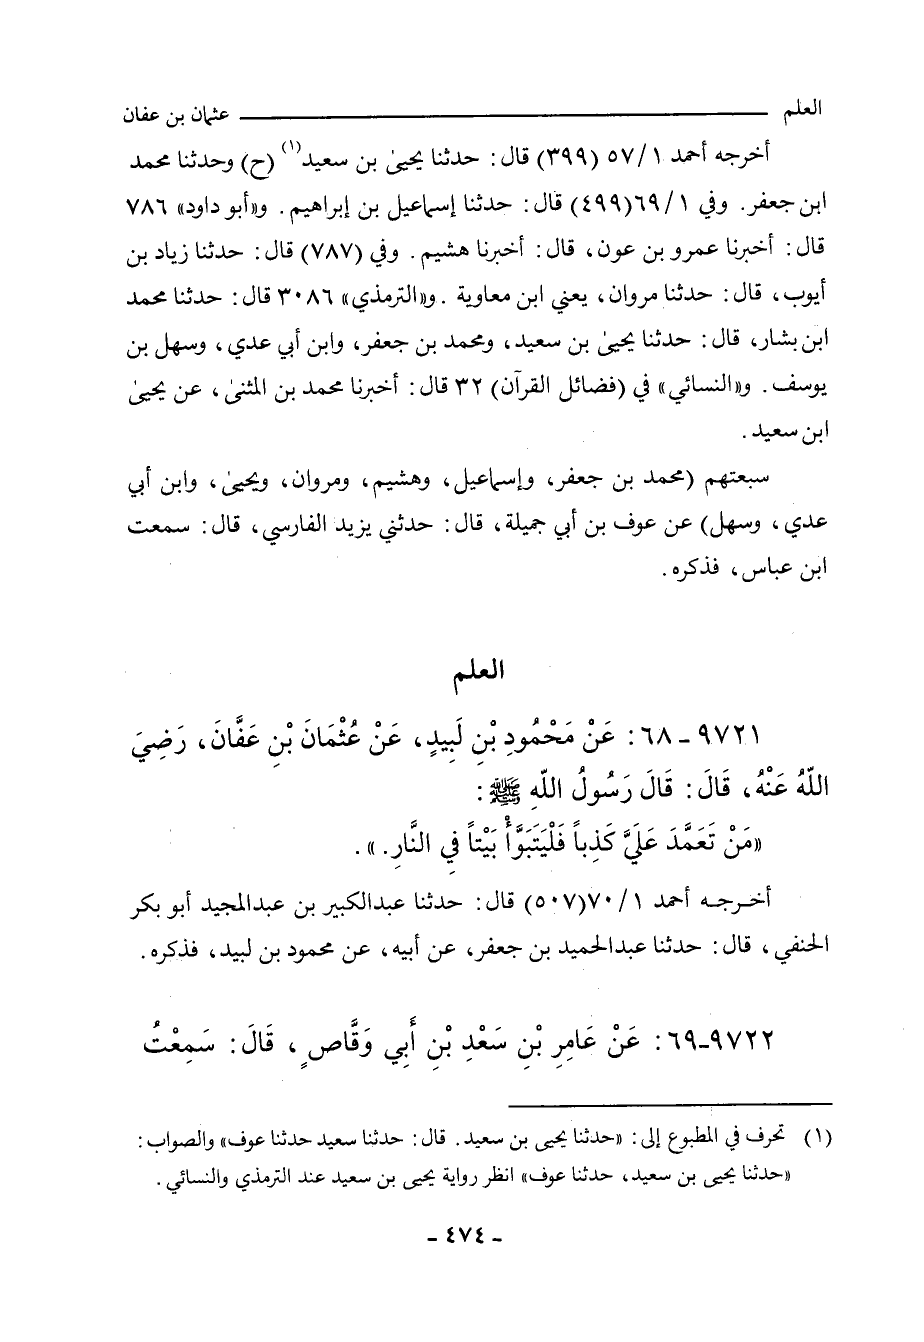 العلم ــــــــ عثمان بن عفان
أخرجه أحمد ١/ ٥٧ (٣٩٩) قال: حدثنا يحيىٰ بن سعيد(١) (ح) وحدثنا محمد
ابن جعفر. وفي ١/ ٦٩(٤٩٩) قال: حدثنا إسماعيل بن إبراهيم. و«أبو داود» ٧٨٦
قال: أخبرنا عمرو بن عون، قال: أخبرنا هشيم. وفي (٧٨٧) قال: حدثنا زياد بن
أيوب، قال: حدثنا مروان، يعني ابن معاوية. و«الترمذي» ٣٠٨٦ قال: حدثنا محمد
ابن بشار، قال: حدثنا يحيىٰ بن سعيد، ومحمد بن جعفر، وابن أبي عدي، وسهل بن
يوسف. و«النسائي» في (فضائل القرآن) ٣٢ قال: أخبرنا محمد بن المثنىٰ، عن يحيىٰ
ابن سعيد.
سبعتهم (محمد بن جعفر، وإسماعيل، وهشيم، ومروان، ويحيىٰ، وابن أبي
عدي، وسهل) عن عوف بن أبي جميلة، قال: حدثني يزيد الفارسي، قال: سمعت
ابن عباس، فذكره.
العلم
٩٧٢١ - ٦٨: عَنْ مَحْمُودِ بْنِ لَبِيدٍ، عَنْ عُثْمَانَ بْنِ عَفَّانَ، رَضِيَ
اللّهُ عَنْهُ، قَالَ: قَالَ رَسُولُ اللّهِ ﷺ:
«مَنْ تَعَمَّدَ عَلَيَّ كَذِباً فَلْيَتَبَوَّأْ بَيْتاً فِي النَّارِ.».
أخـرجـه أحمد ١/ ٧٠(٥٠٧) قال: حدثنا عبدالكبير بن عبدالمجيد أبو بكر
الحنفي، قال: حدثنا عبدالحميد بن جعفر، عن أبيه، عن محمود بن لبيد، فذكره.
٩٧٢٢-٦٩: عَنْ عَامِرِ بْنِ سَعْدِ بْنِ أَبِي وَقَّاصٍ، قَالَ: سَمِعْتُ
(١) تحرف في المطبوع إلى: «حدثنا يحيى بن سعيد. قال: حدثنا سعيد حدثنا عوف» والصواب:
«حدثنا يحيى بن سعيد، حدثنا عوف» انظر رواية يحيى بن سعيد عند الترمذي والنسائي.
- ٤٧٤ -